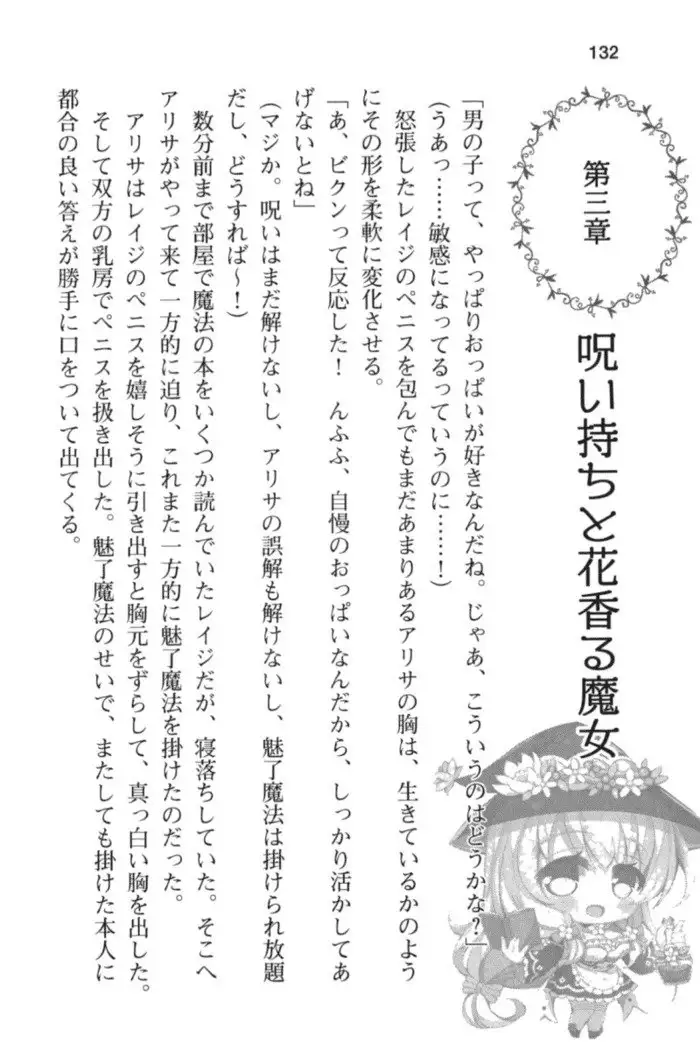 132
第三章
呪い持ちと花香る魔女
「男の子って、やっぱりおっぱいが好きなんだね。じゃあ、こういうのはどうかな？」
（うあっ……敏感になってるっていうのに……！）
怒張したレイジのペニスを包んでもまだあまりあるアリサの胸は、生きているかのよう
にその形を柔軟に変化させる。
「あ、ビクンって反応した！　んふふ、自慢のおっぱいなんだから、しっかり活かしてあ
げないとね」
（マジか。呪いはまだ解けないし、アリサの誤解も解けないし、魅了魔法は掛けられ放題
だし、どうすれば～！）
数分前まで部屋で魔法の本をいくつか読んでいたレイジだが、寝落ちしていた。そこへ
アリサがやって来て一方的に迫り、これまた一方的に魅了魔法を掛けたのだった。
アリサはレイジのペニスを嬉しそうに引き出すと胸元をずらして、真っ白い胸を出した。
そして双方の乳房でペニスを扱き出した。魅了魔法のせいで、またしても掛けた本人に
都合の良い答えが勝手に口をついて出てくる。